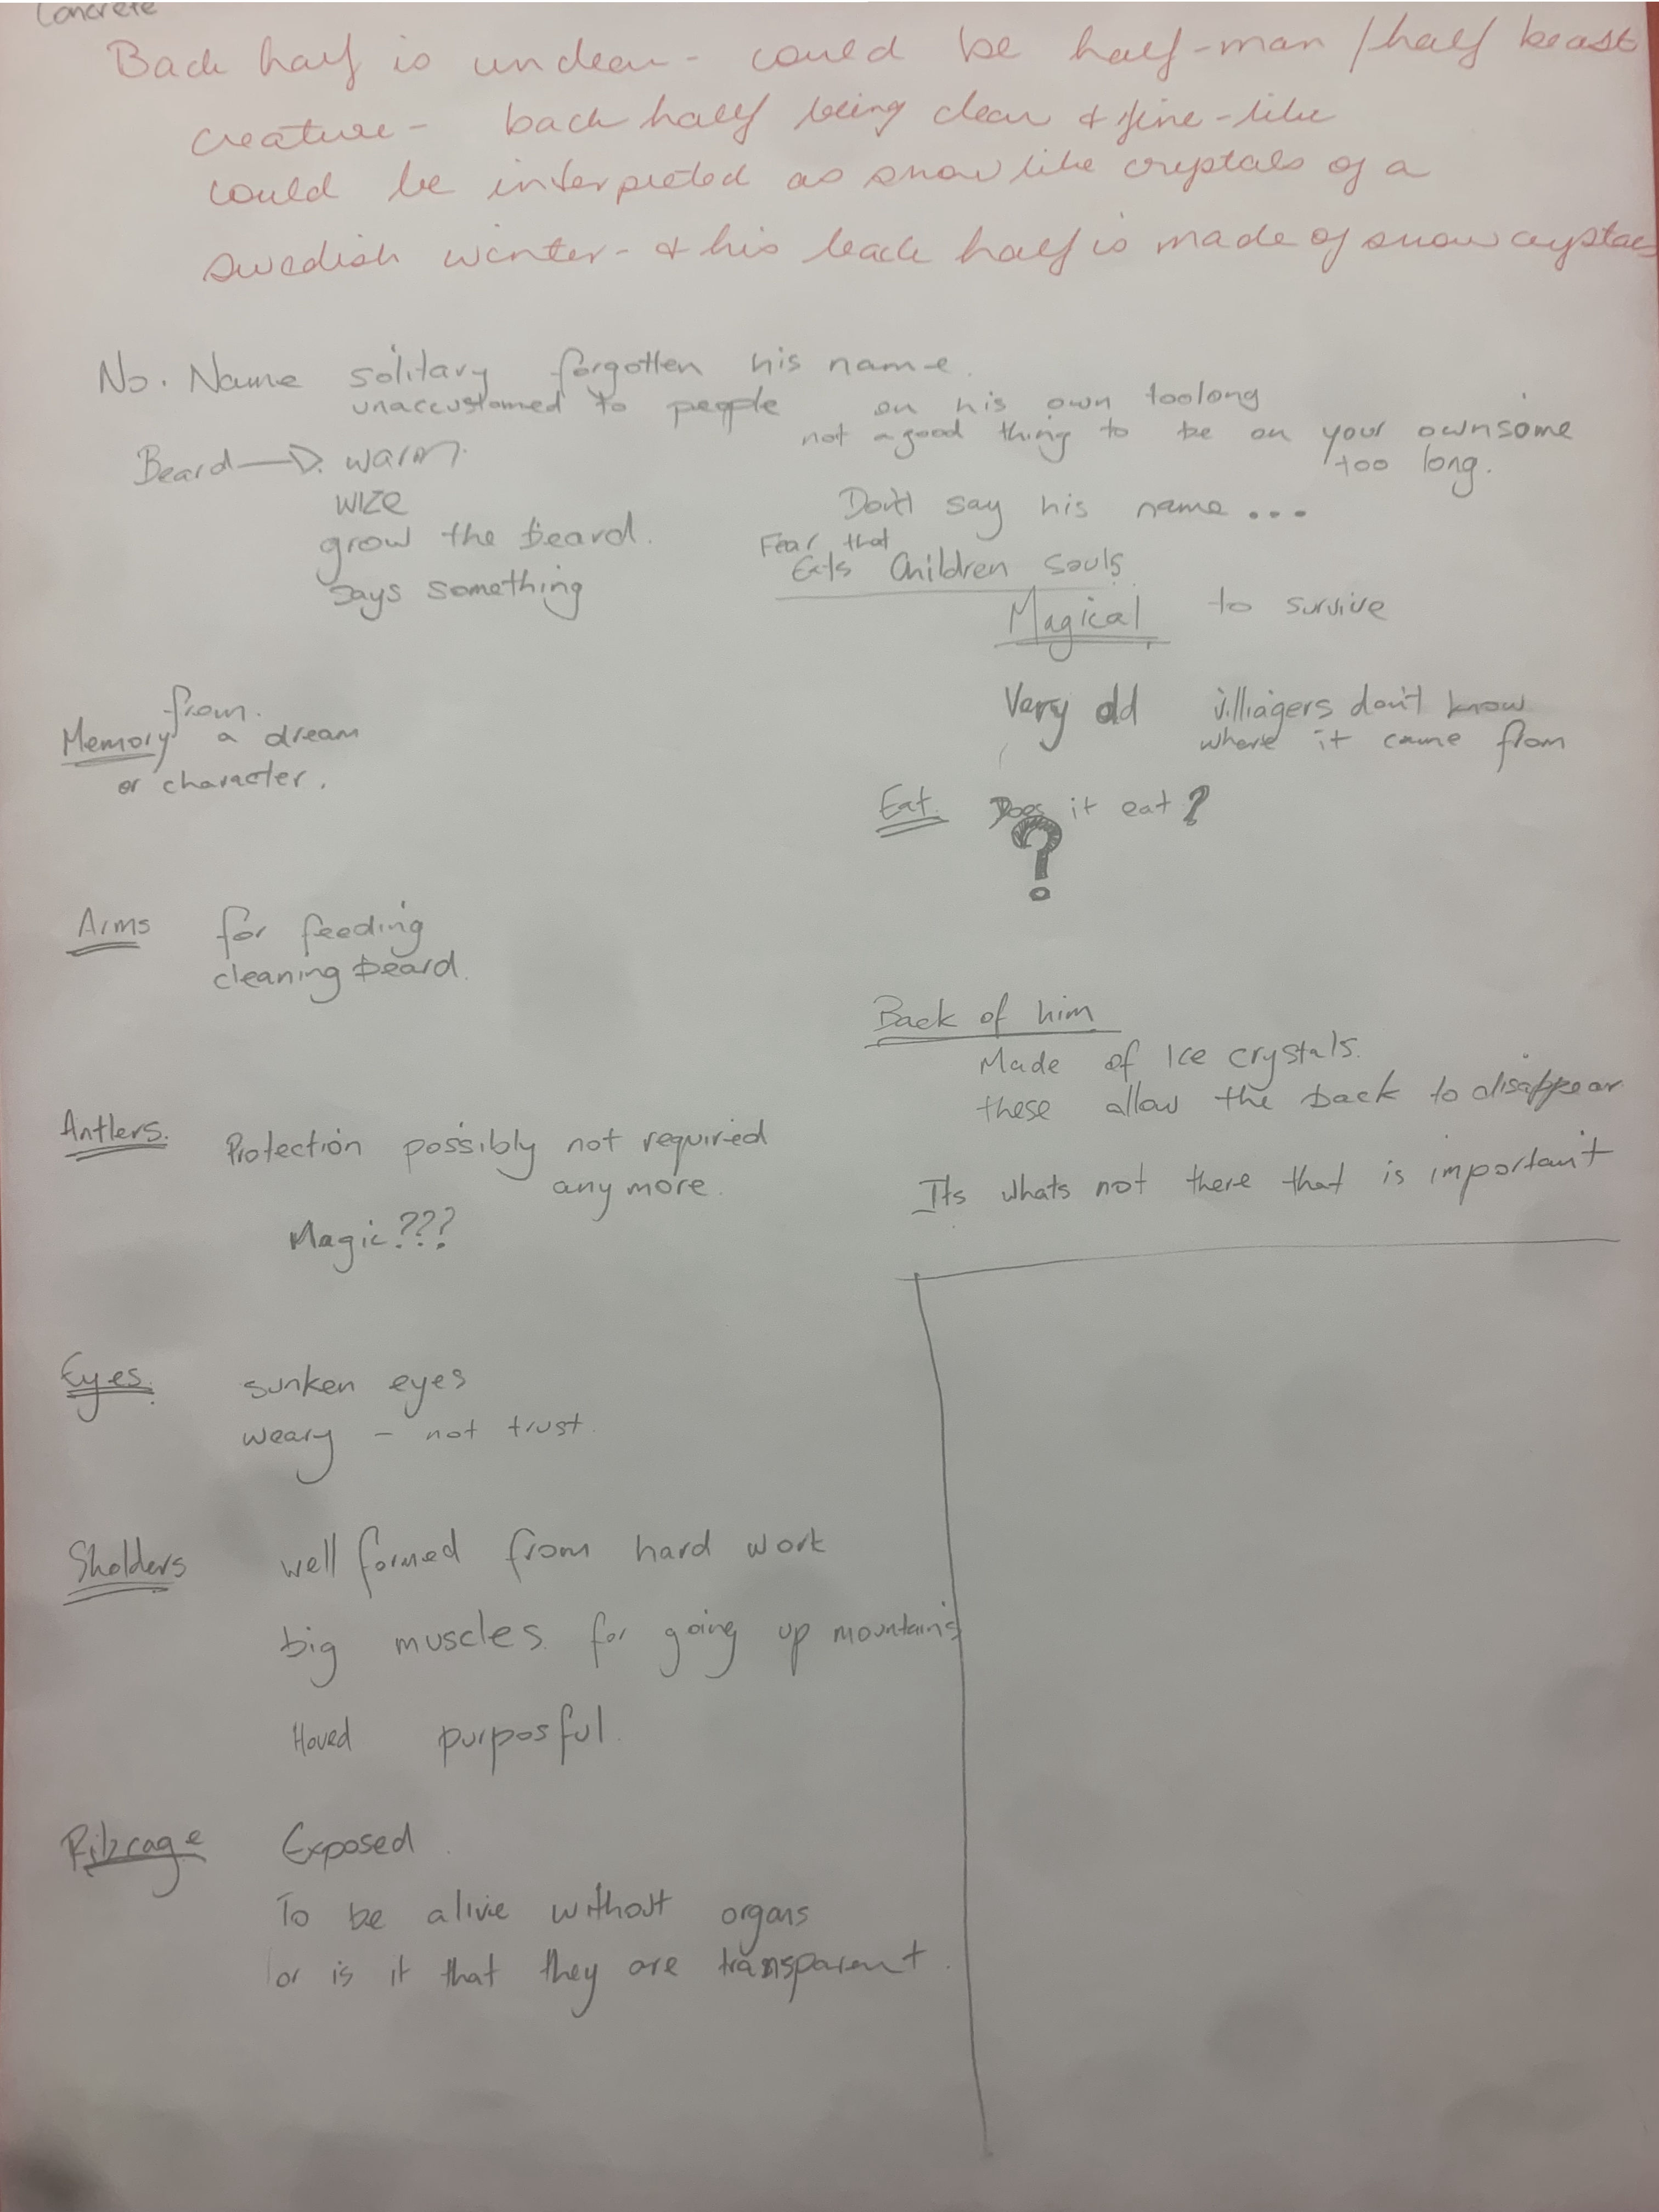 Concrete
Back half is unclear - could be half-man / half beast
creature - back half being clear & fine-like
could be interpreted as snow like crystals of a
swedish winter - & his back half is made of snow crystals
No. Name solitary forgotten his name.
unaccustomed to people on his own too long
not a good thing to be on your ownsome
too long.
Beard → warm.
wize
grow the beard.
says something
Don't say his name...
Fear that
Eats Children souls
Magical to survive
Very old villiagers don't know
where it came from
from.
Memory a dream
or character.
Eat. Does it eat?
?
Arms for feeding
cleaning beard.
Back of him
Made of Ice crystals.
these allow the back to disappear
Its whats not there that is important
Antlers. Protection possibly not required
any more.
Magic???
Eyes. sunken eyes
weary - not trust.
Sholders well formed from hard work
big muscles for going up mountains
Hoved purposful.
Ribcage Exposed.
To be alive without organs
or is it that they are transparent.